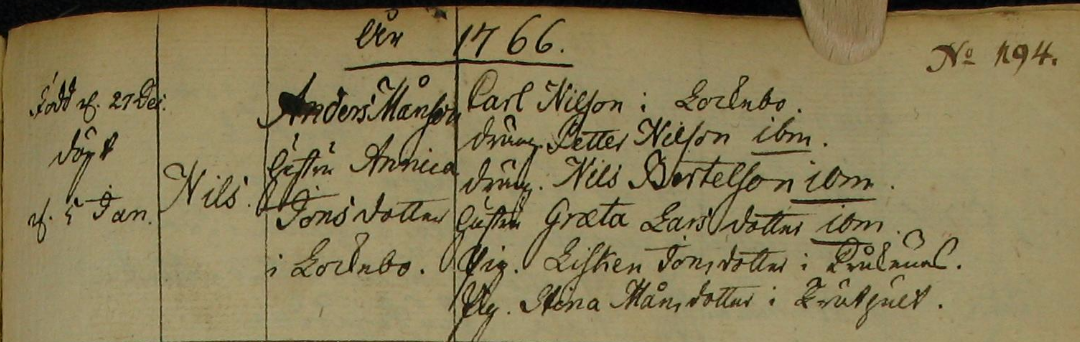 År 1766.
No 194.
Född d. 27 Dec.
döpt
d. 5 Jan.
Nils.
Anders Månson
hustru Annica
Jons dotter
i Lockebo.
Carl Nilson i Lockebo.
dräng. Petter Nilson ibm.
dräng. Nils Bertelson ibm.
hustru Græta Lars dotter ibm.
Pig. Lisken Jons dotter i
Pig. Stina Måns dotter i